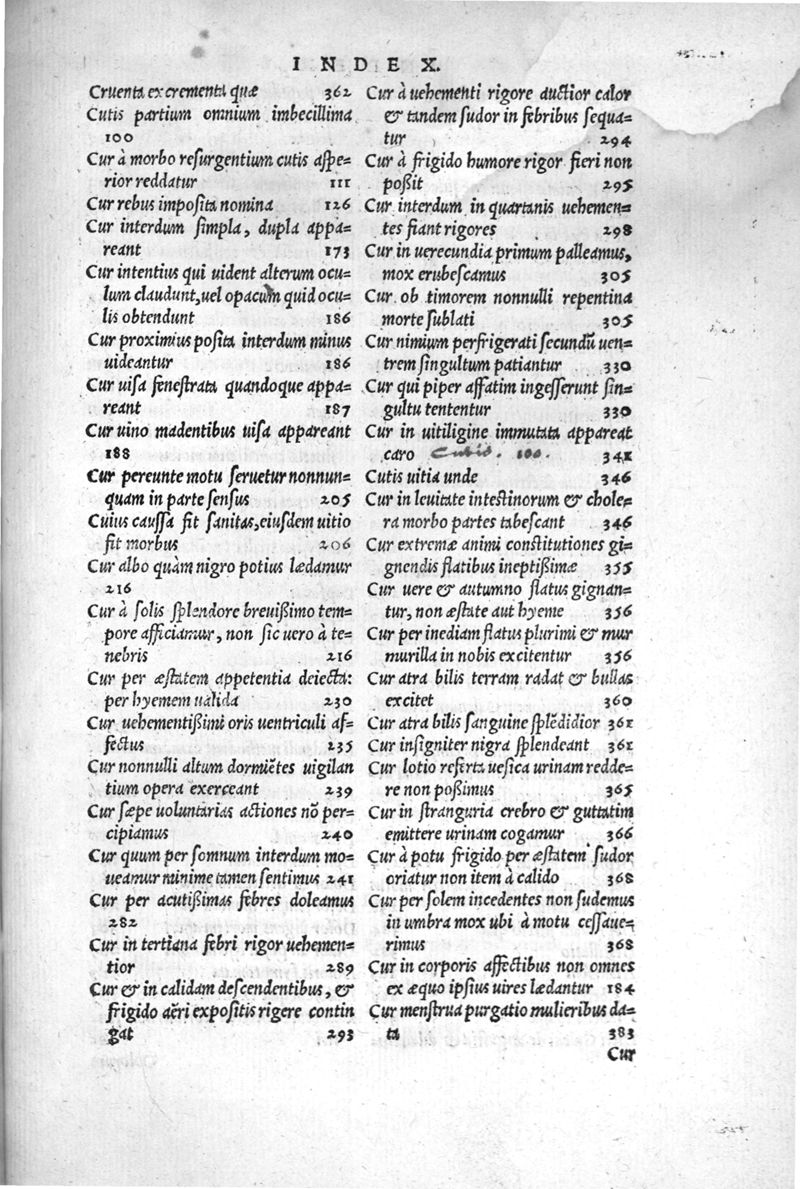 INDEX.
Cruenta excrementa quæ 362
Cutis partium omnium imbecillima
100
Cur à morbo resurgentium cutis aspe=
rior reddatur 111
Cur rebus imposita nomina 126
Cur interdum simpla, dupla appa=
reant 173
Cur intentius qui uident alterum ocu=
lum claudunt, uel opacum quid ocu=
lis obtendunt 186
Cur proximius posita interdum minus
uideantur 186
Cur uisa fenestrata quandoque appa=
reant 187
Cur uino madentibus uisa appareant
188
Cur pereunte motu seruetur nonnun=
quam in parte sensus 205
Cuius caussa fit sanitas, eiusdem uitio
fit morbus 206
Cur albo quàm nigro potius lædamur
216
Cur à solis splendore breuißimo tem=
pore afficiamur, non sic uero à te=
nebris 216
Cur per æstatem appetentia deiecta:
per hyemem ualida 230
Cur uehementißimi oris uentriculi af=
fectus 235
Cur nonnulli altum dormiẽtes uigilan
tium opera exerceant 239
Cur sæpe uoluntarias actiones nõ per=
cipiamus 240
Cur quum per somnum interdum mo=
ueamur minime tamen sentimus 241
Cur per acutißimas febres doleamus
282
Cur in tertiana febri rigor uehemen=
tior 289
Cur & in calidam descendentibus, &
frigido aëri expositis rigere contin
gat 293
Cur à uehementi rigore auctior calor
& tandem sudor in febribus sequa=
tur 294
Cur à frigido humore rigor fieri non
poßit 295
Cur interdum in quartanis uehemen=
tes fiant rigores 298
Cur in uerecundia primum palleamus,
mox erubescamus 305
Cur ob timorem nonnulli repentina
morte sublati 305
Cur nimium perfrigerati secundũ uen=
trem singultum patiantur 330
Cur qui piper affatim ingesserunt sin=
gultu tententur 330
Cur in uitiligine immutata appareat
caro Cutis. 100. 341
Cutis uitia unde 346
Cur in leuitate intestinorum & chole=
ra morbo partes tabescant 346
Cur extremæ animi constitutiones gi=
gnendis flatibus ineptißimæ 355
Cur uere & autumno flatus gignan=
tur, non æstate aut hyeme 356
Cur per inediam flatus plurimi & mur
murilla in nobis excitentur 356
Cur atra bilis terram radat & bullas
excitet 360
Cur atra bilis sanguine splẽdidior 361
Cur insigniter nigra splendeant 361
Cur lotio referta uesica urinam redde=
re non poßimus 365
Cur in stranguria crebro & guttatim
emittere urinam cogamur 366
Cur à potu frigido per æstatem sudor
oriatur non item à calido 368
Cur per solem incedentes non sudemus
in umbra mox ubi à motu cessaue=
rimus 368
Cur in corporis affectibus non omnes
ex æquo ipsius uires lædantur 184
Cur menstrua purgatio mulieribus da=
ta 383
Cur